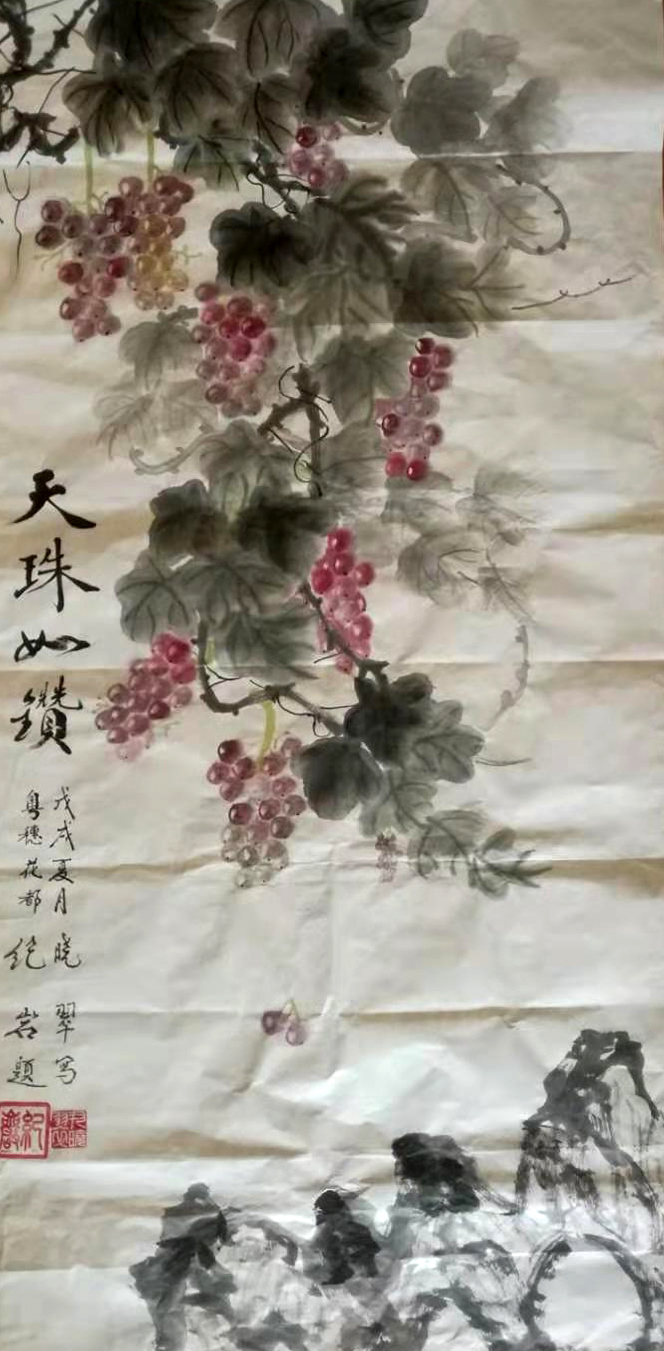 天珠如鑽
戊戌夏月 曉翠写
粤穗花都 纪岩题